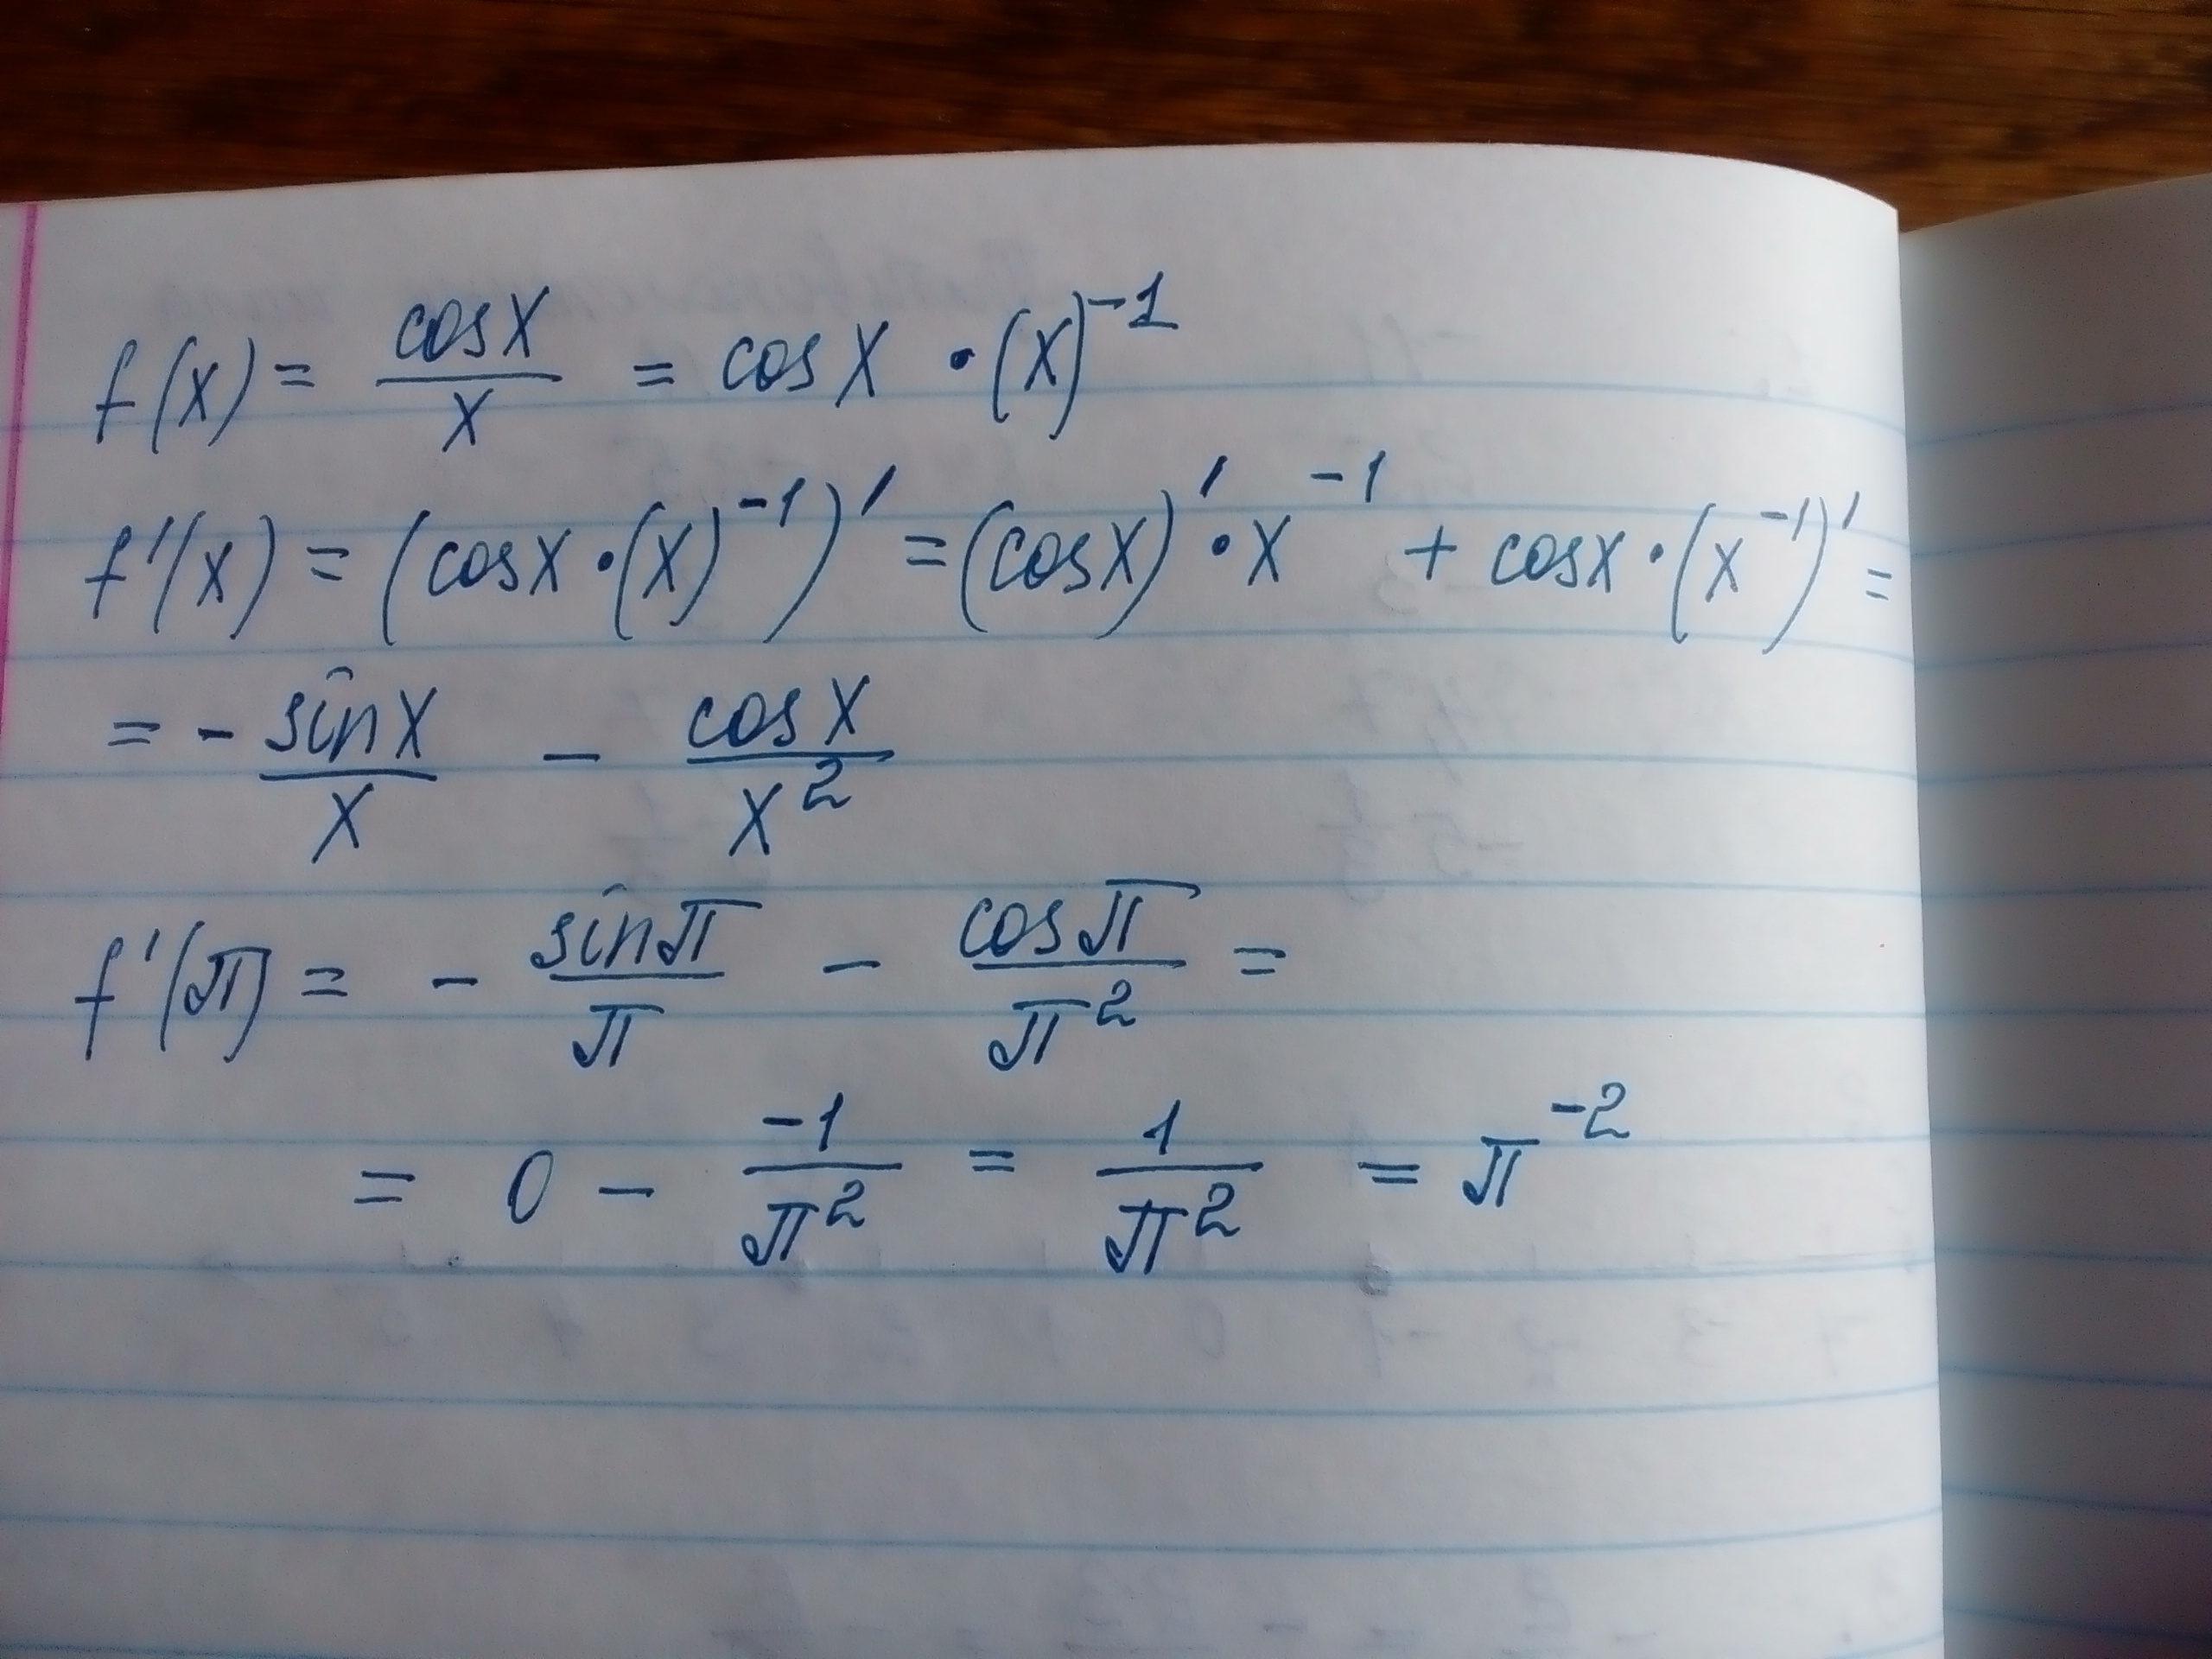 f(x) = cosx/x = cosx • (x)^-1
f'(x) = (cosx • (x)^-1)' = (cosx)' • x^-1 + cosx • (x^-1)' =
= - sinx/x - cosx/x^2
f'(π) = - sinπ/π - cosπ/π^2 =
= 0 - -1/π^2 = 1/π^2 = π^-2